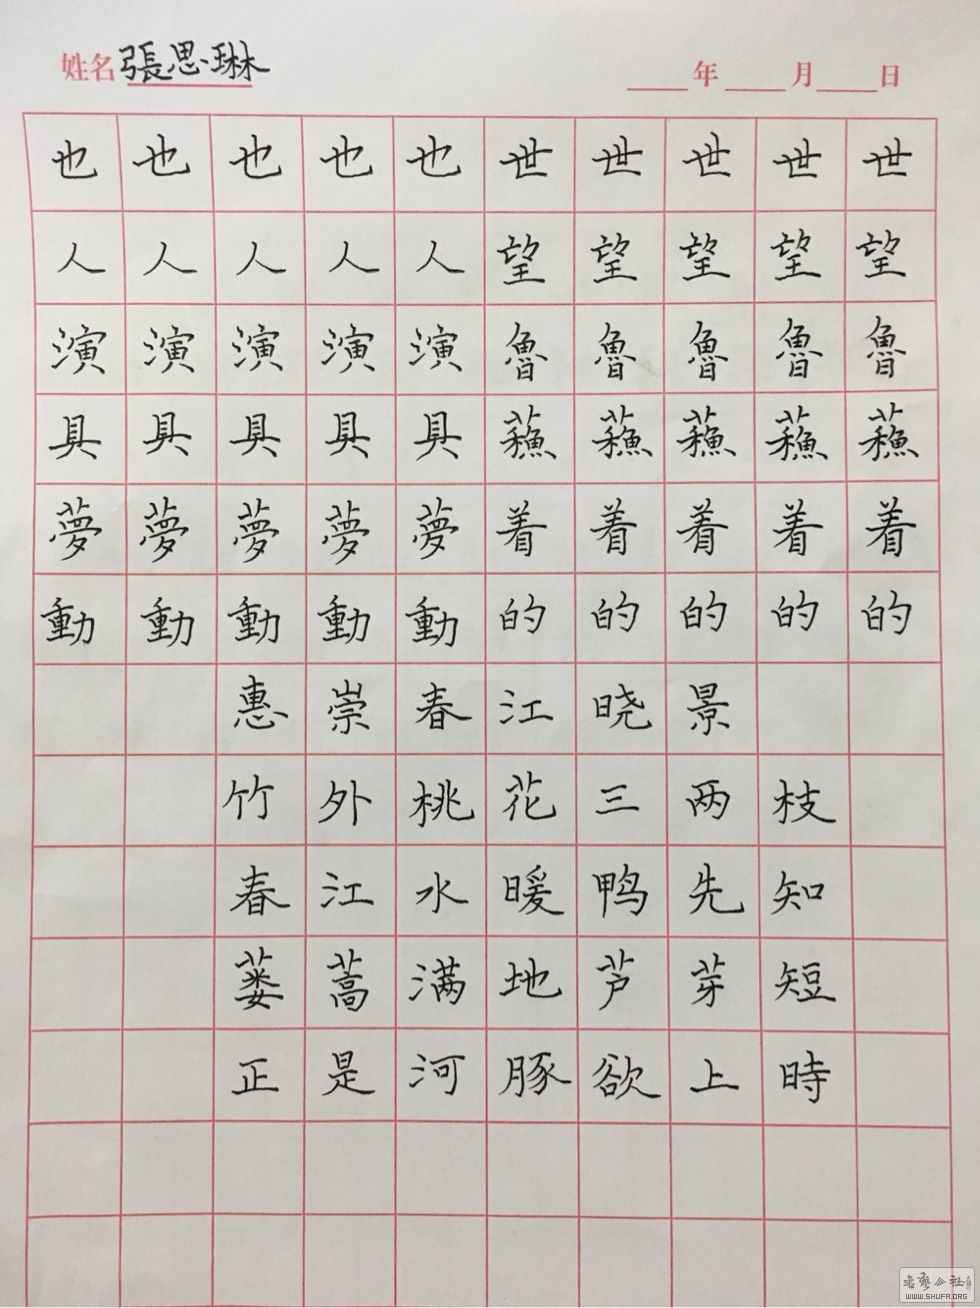 姓名 張思琳 年 月 日
也也也也也世世世世世
人人人人人望望望望望
演演演演演魯魯魯魯魯
具具具具具蘓蘓蘓蘓蘓
夢夢夢夢夢着着着着着
動動動動動的的的的的
惠崇春江晓景
竹外桃花三两枝
春江水暖鸭先知
蒌蒿满地芦芽短
正是河豚欲上時
書藝公社
WWW.SHUFA.ORG